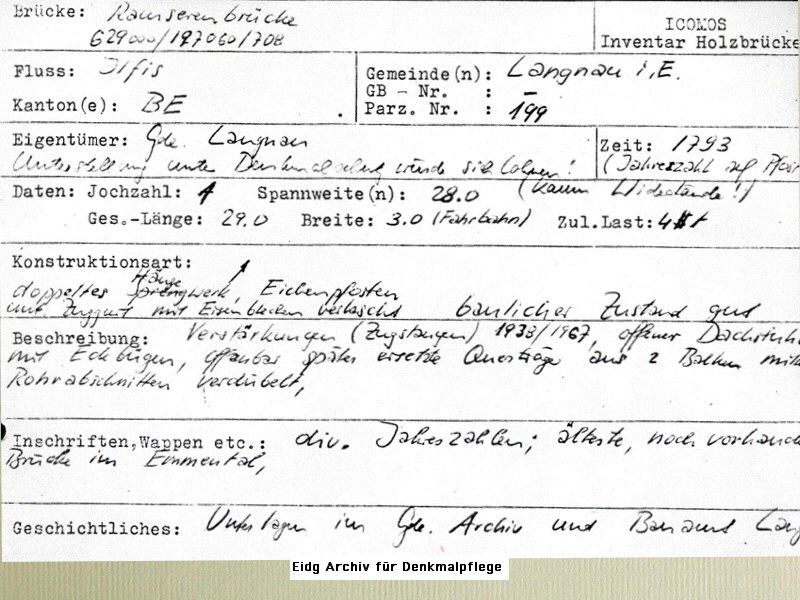 Brücke: Ramserenbrücke
629000/197060/708
ICOMOS
Inventar Holzbrücke
Fluss: Ilfis
Kanton(e): BE
Gemeinde(n): Langnau i.E.
GB - Nr. : -
Parz. Nr. : 199
Eigentümer: Gde. Langnau
Unterstellung unter Denkmalschutz würde sich lohnen!
Zeit: 1793
(Jahreszahl auf
Daten: Jochzahl: 1 Spannweite(n): 28.0 (kaum Widerstände!)
Ges.-Länge: 29.0 Breite: 3.0 (Fahrbahn) Zul.Last: 4 t
Konstruktionsart:
doppeltes Hängewerk, Eichenpfosten
und Zuggurt mit Eisenblechen verlascht baulicher Zustand gut
Beschreibung: Verstärkungen (Zugstangen) 1938/1967, offener Dachstuhl
mit Eckbügen, offenbar später ersetzte Querträge aus 2 Balken mitte
Rohrabschnitten verdübelt,
Inschriften, Wappen etc.: div. Jahreszahlen; älteste, noch vorhand
Brücke im Emmental,
Geschichtliches: Unterlagen im Gde. Archiv und Bauamt Lang
Eidg Archiv für Denkmalpflege